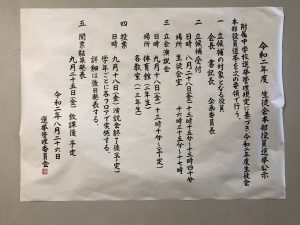 令和二年度 生徒会本部役員選挙公示
附属中学校選挙管理規定に基づき、令和二年度生徒会
本部役員選挙を次の要領で行う。
一 立候補の対象となる役員
会長 書記 企画委員長
二 立候補受付
日時 八月二十八日(金)十三時十五分～十三時四十分
十六時三十五分～十七時
場所 生徒会室
三 立会演説会
日時 九月十八日(金)
場所 体育館(三年生)
各教室(一・二年生)
四 投票
日時 九月十八日(金)演説会終了後(予定)
学年ごとに各フロアで実施する。
詳細は後日発表する。
五 開票結果発表
九月二十五日(金)放課後予定
令和二年八月二十六日
選挙管理委員会